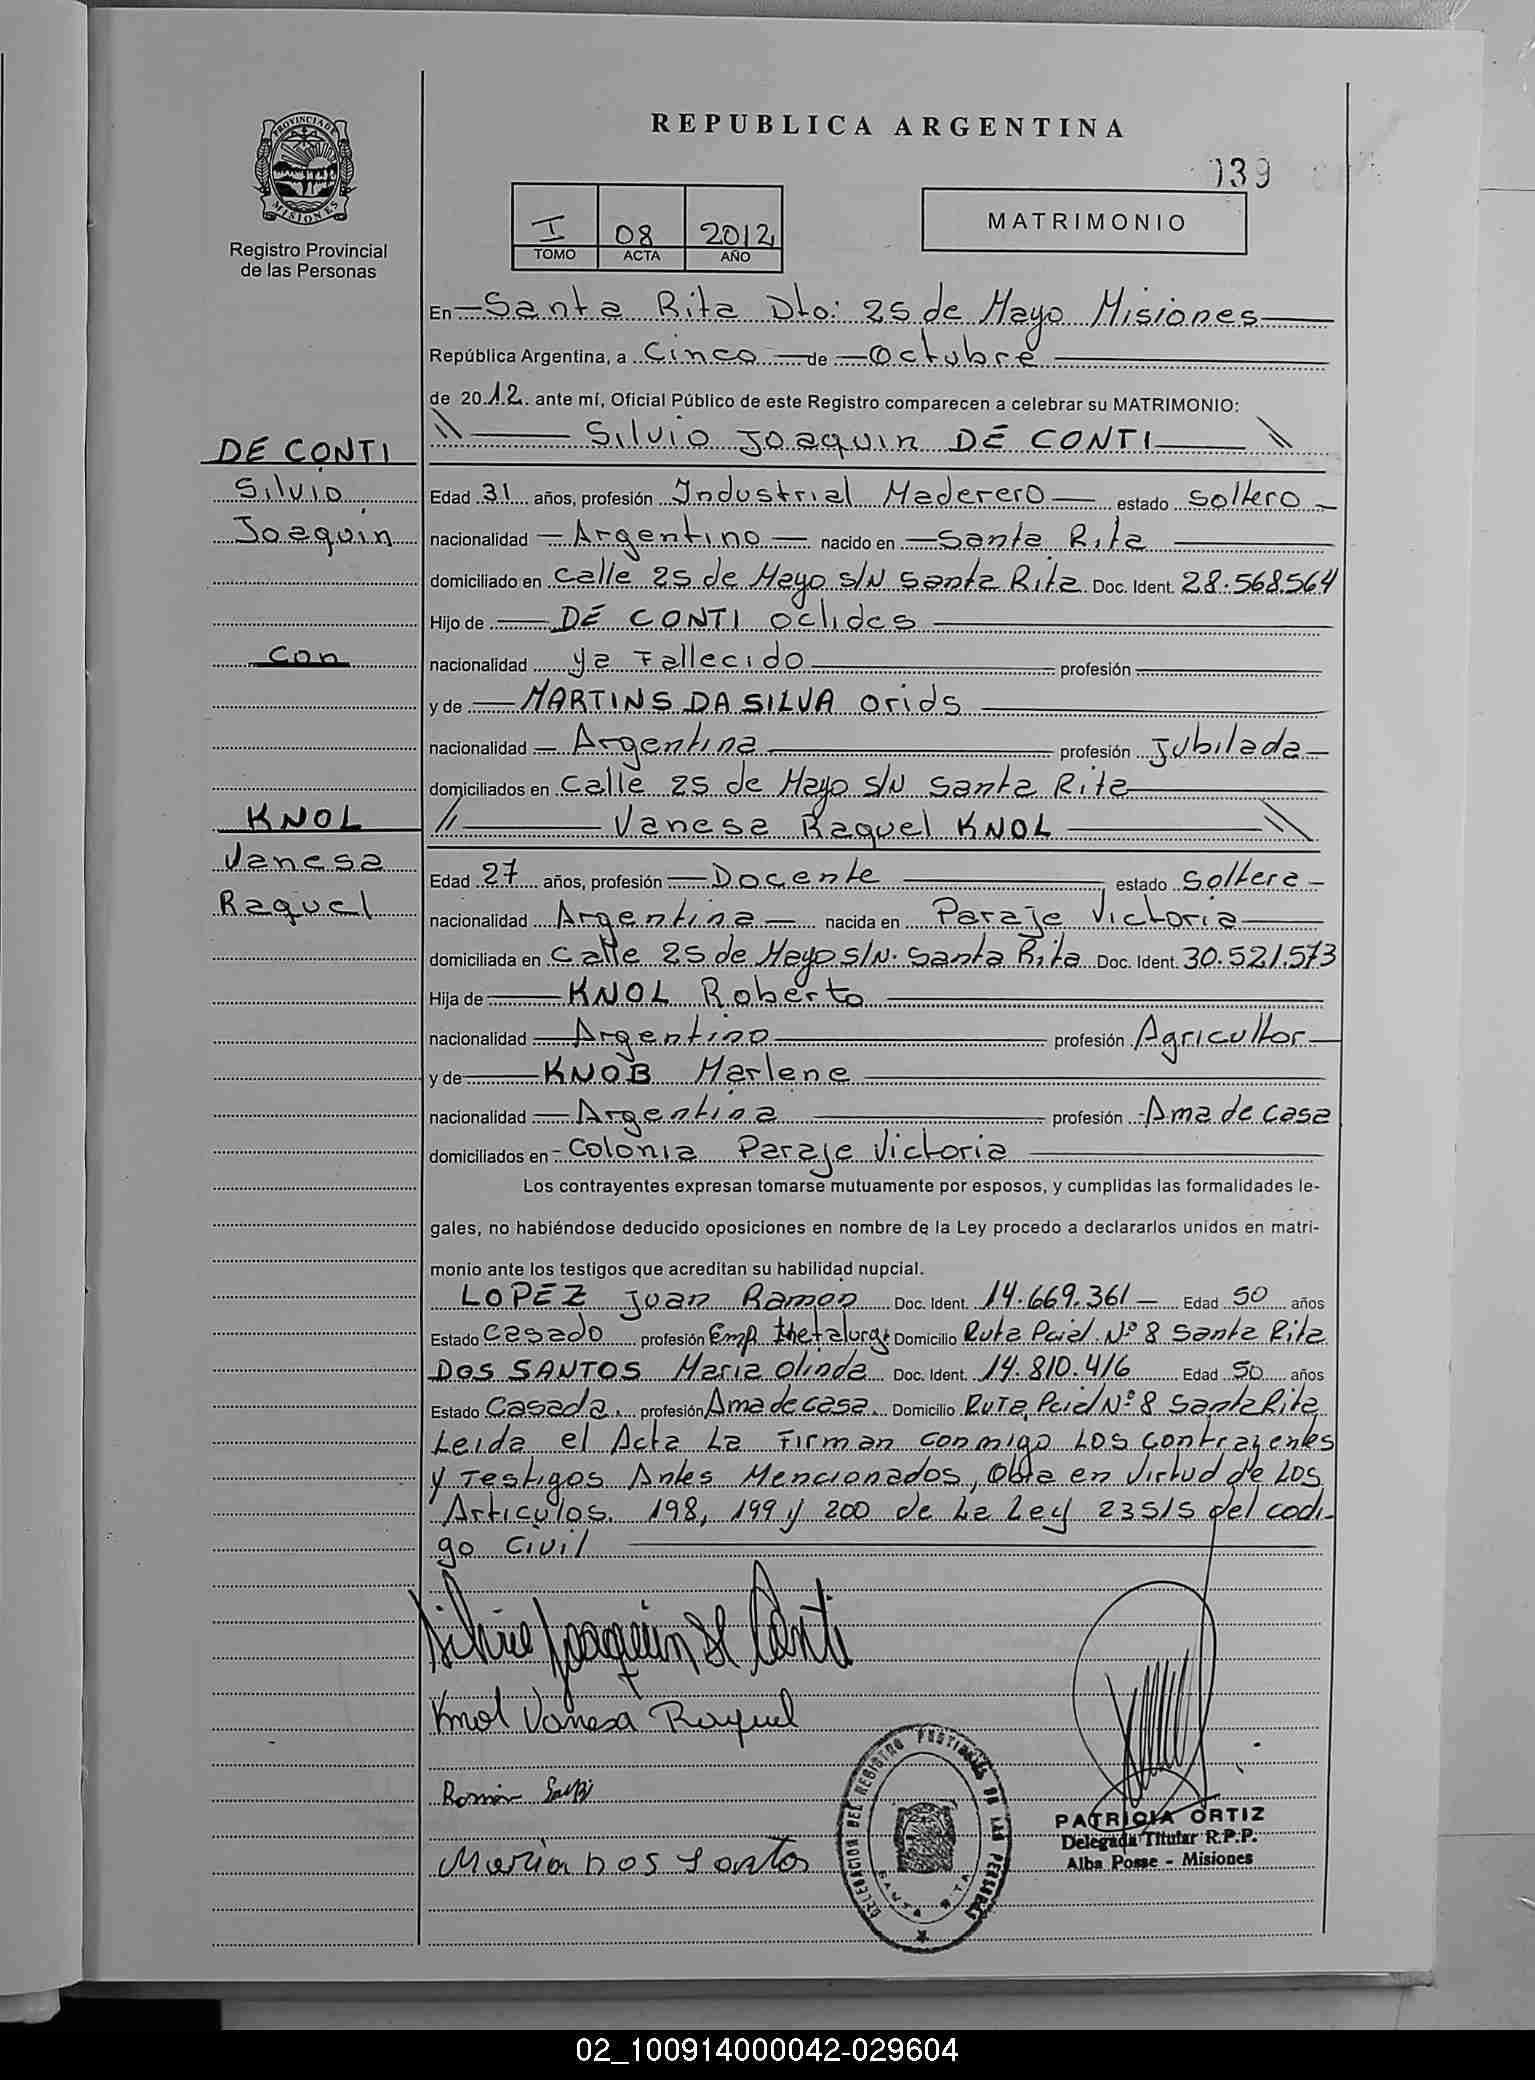 PROVINCIA DE
MISIONES
Registro Provincial
de las Personas
REPUBLICA ARGENTINA
039
I 08 2012
TOMO ACTA AÑO
MATRIMONIO
En Santa Rita Dto: 25 de Mayo Misiones
República Argentina, a Cinco de Octubre
de 2012. ante mí, Oficial Público de este Registro comparecen a celebrar su MATRIMONIO:
Silvio Joaquin DE CONTI
DE CONTI
Silvio
Joaquin
con
KNOL
Vanesa
Raquel
Edad 31 años, profesión Industrial Maderero estado soltero
nacionalidad Argentino nacido en Santa Rita
domiciliado en calle 25 de Mayo S/N Santa Rita Doc. Ident. 28.568.564
Hijo de DE CONTI Oclides
nacionalidad ya Fallecido profesión
y de MARTINS DA SILVA Orids
nacionalidad Argentina profesión Jubilada
domiciliados en calle 25 de Mayo S/N Santa Rita
Vanesa Raquel KNOL
Edad 27 años, profesión Docente estado Soltera
nacionalidad Argentina nacida en Paraje Victoria
domiciliada en calle 25 de Mayo S/N. Santa Rita Doc. Ident. 30.521.573
Hija de KNOL Roberto
nacionalidad Argentino profesión Agricultor
y de KNOB Marlene
nacionalidad Argentina profesión Ama de casa
domiciliados en Colonia Paraje Victoria
Los contrayentes expresan tomarse mutuamente por esposos, y cumplidas las formalidades le-
gales, no habiéndose deducido oposiciones en nombre de la Ley procedo a declararlos unidos en matri-
monio ante los testigos que acreditan su habilidad nupcial.
LOPEZ Juan Ramon Doc. Ident. 14.669.361 Edad 50 años
Estado Casado profesión Emp. Metalurg. Domicilio Ruta Pcial. Nº 8 Santa Rita
DOS SANTOS Maria Olinda Doc. Ident. 14.810.416 Edad 50 años
Estado Casada. profesión Ama de casa. Domicilio Ruta Pcial Nº 8 Santa Rita
Leida el Acta La Firman conmigo Los contrayentes
y Testigos Antes Mencionados, Obra en virtud de Los
Articulos. 198, 199 y 200 de La Ley 23515 del codi-
go Civil
Silvio Joaquin de Conti
Knol Vanesa Raquel
Ramón
Maria Dos Santos
DELEGACION DEL REGISTRO PROVINCIAL DE LAS PERSONAS
SANTA RITA
PATRICIA ORTIZ
Delegada Titular R.P.P.
Alba Posse - Misiones
02_100914000042-029604